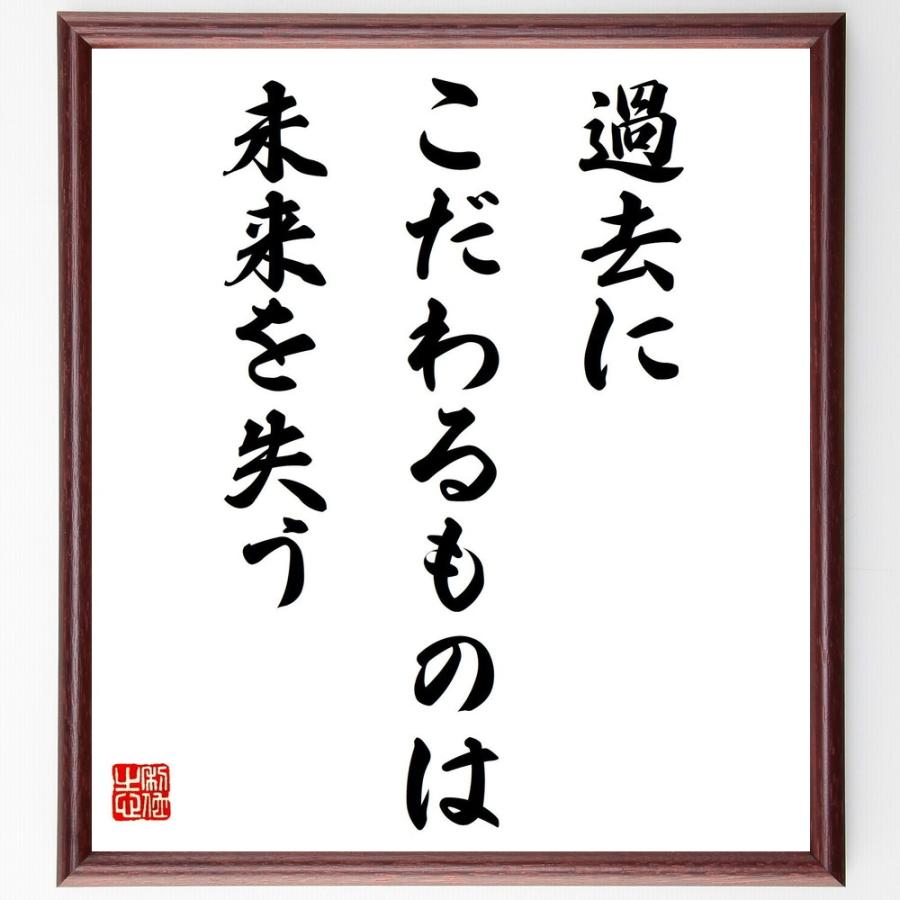 過去に
こだわるものは
未来を失う